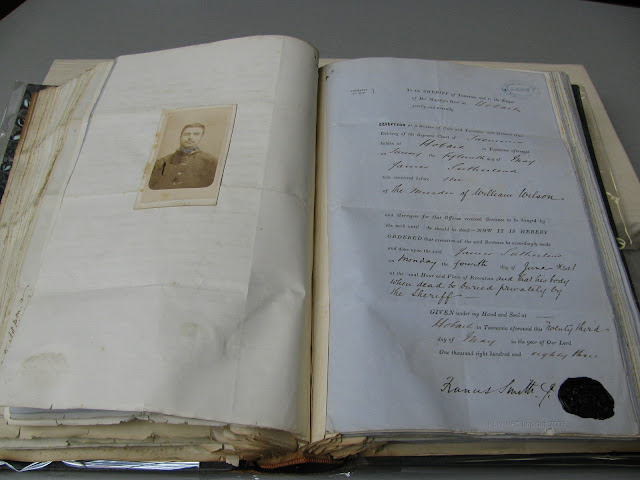 To the SHERIFF of Tasmania and to the Keeper
of Her Majesty's Gaol at Hobart
jointly and severally.
WHEREAS at a Session of Oyer and Terminer and General Gaol
Delivery of the Supreme Court of Tasmania
holden at Hobart in Tasmania aforesaid
on Tuesday the fifteenth of May
James Sutherland
was convicted before me
of the Murder of William Wilson
and thereupon for that Offence received Sentence to be hanged by
the neck until he should be dead—NOW IT IS HEREBY
ORDERED that execution of the said Sentence be accordingly made
and done upon the said James Sutherland
on Monday the fourth day of June next
at the usual Hour and Place of Execution and that his body
when dead be buried privately by
the Sheriff
GIVEN under my Hand and Seal at
Hobart in Tasmania aforesaid this Twenty third
day of May in the year of Our Lord
One thousand eight hundred and eighty three
Francis Smith